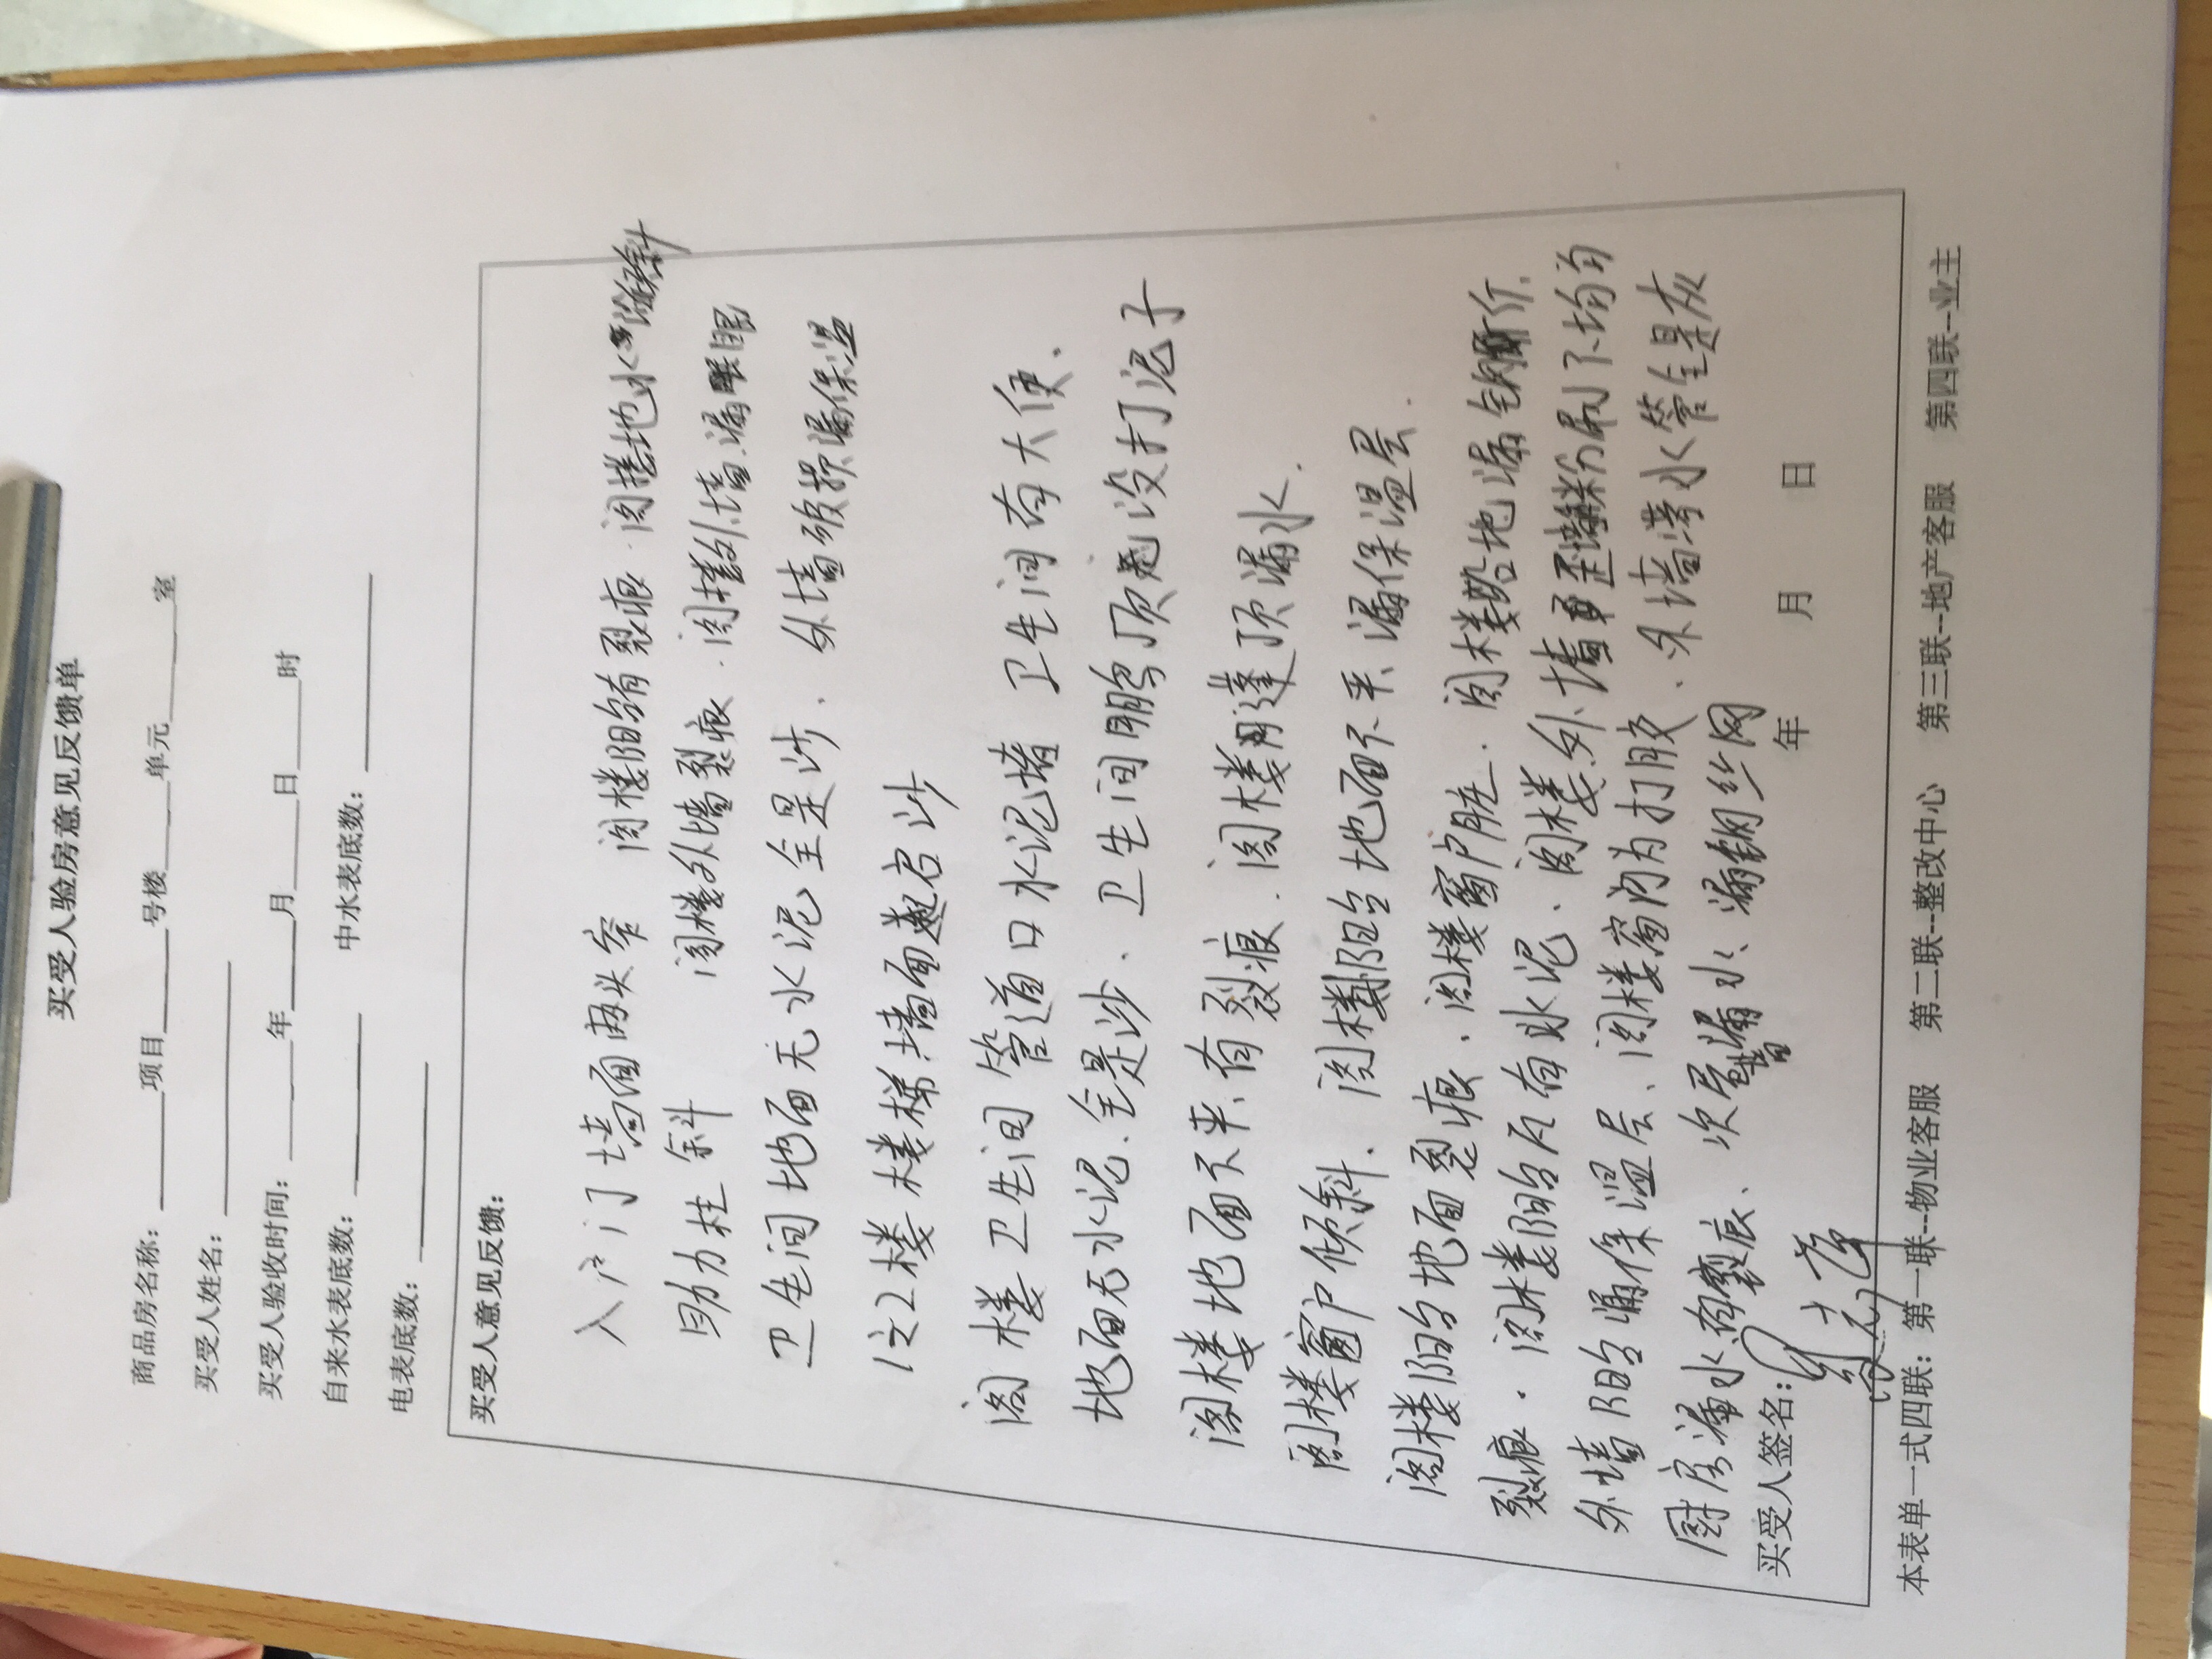 买受人验房意见反馈单
商品房名称：____项目____号楼____单元____室
买受人姓名：
买受人验收时间：____年____月____日____时
自来水表底数：____ 中水表底数：____
电表底数：
买受人意见反馈：
入户门墙面两头窄 阁楼阳台有裂痕.阁楼地 斜
助力柱斜 阁楼外墙裂痕.阁楼外墙.漏眼
卫生间地面无水泥全是沙.外墙破损漏保温
1之2楼楼梯墙面起沙
阁楼卫生间管道口水泥堵 卫生间有大便.
地面无水泥.全是沙、卫生间 顶 没打泥子
阁楼地面不平、有裂痕.阁楼 顶漏水.
阁楼窗户倾斜.阁楼阳台地面不平、漏保温层.
阁楼阳台地面裂痕.阁楼窗户脏.阁楼 地漏钢 .
裂痕.阁楼阳台 有水泥、阁楼外墙 粉刷不均匀
外墙阳台漏保温层、阁楼窗 为打胶.外墙 水管全是灰
厨房漏水有裂痕、次 漏水、漏钢丝网
买受人签名： 年 月 日
本表单一式四联：第一联--物业客服 第二联--整改中心 第三联--地产客服 第四联--业主